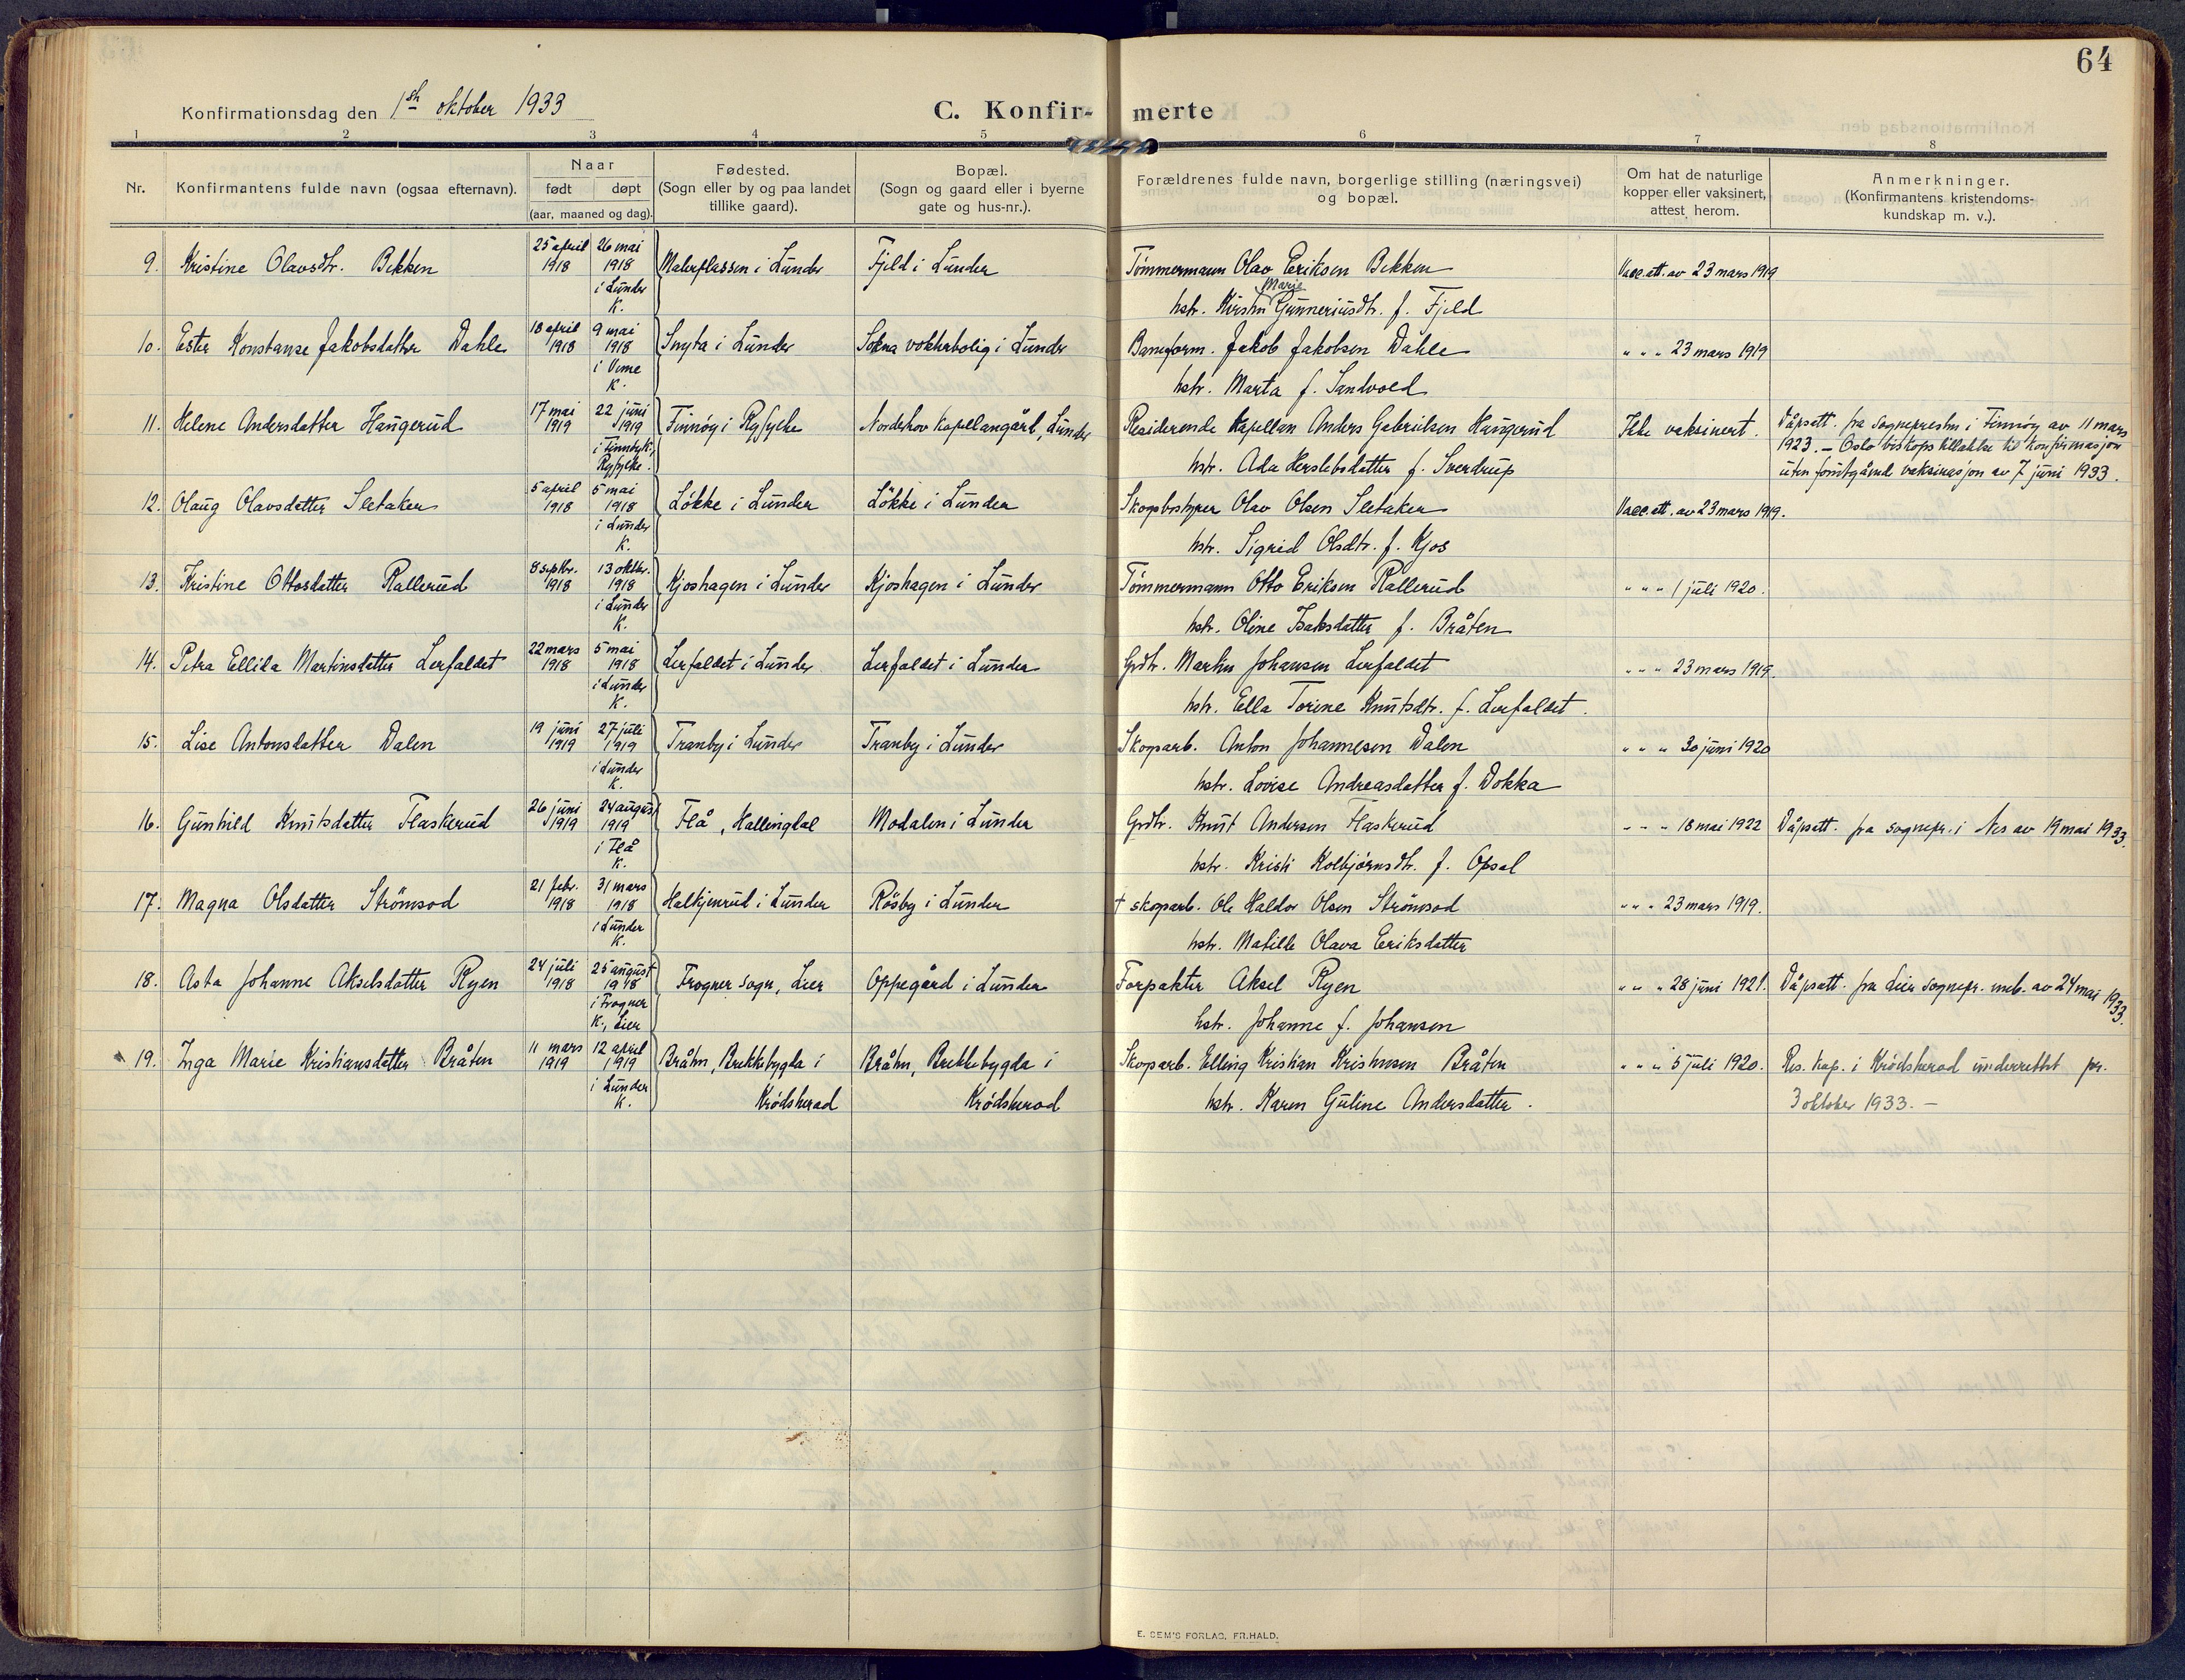 64
Konfirmationsdag den 1ste oktober 1933
C. Konfir- merte
1 2 3 4 5 6 7 8
Nr.
Konfirmantens fulde navn (ogsaa efternavn).
Naar
født døpt
(aar, maaned og dag).
Fødested.
(Sogn eller by og paa landet
tillike gaard).
Bopæl.
(Sogn og gaard eller i byerne
gate og hus-nr.).
Forældrenes fulde navn, borgerlige stilling (næringsvei)
og bopæl.
Om hat de naturlige
kopper eller vaksinert,
attest herom.
Anmerkninger.
(Konfirmantens kristendoms-
kundskap m. v.).
9. Kristine Olavsdtr. Bekken 25 april 1918 26 mai 1918 i Lunder K. i Lunder Fjeld i Lunder Tømmermann Olav Eriksen Bekken Vacc. att. av 23 mars 1919
hstr. Kirstin Marie Gunneriusdtr. f. Fjeld
10. Ester Konstanse Jakobsdatter Dahle 18 april 1918 9 mai 1918 i K. Snyta i Lunder Sokna vokterbolig i Lunder Baneform. Jakob Jakobsen Dahle " " " 23 mars 1919
hstr. Marta f. Sandvold
11. Helene Andersdatter Haugerud 17 mai 1919 22 juni 1919 i Finnöy K., Ryfylke. Finnöy i Ryfylke Norderhov kapellangård, Lunder Residerende kapellan Anders Gabrielsen Haugerud Ikke vaksinert. Dåpsatt. fra sognepresten i Finnöy av 11 mars
1923. – Oslo biskops tillatelse til konfirmasjon
hstr. Ada Herslebsdatter f. Sverdrup uten forutgående vaksinasjon av 7 juni 1933.
12. Olaug Olavsdatter Sletaker 5 april 1918 5 mai 1918 i Lunder K. Løkke i Lunder Løkke i Lunder Skogbestyrer Olav Olsen Sletaker Vacc. att. av 23 mars 1919.
hstr. Sigrid Olsdtr. f. Kjos
13. Kristine Ottosdatter Rallerud 8 septbr. 1918 13 oktbr. 1918 i Lunder K. Kjoshagen i Lunder Kjoshagen i Lunder Tømmermann Otto Eriksen Rallerud " " " 1 juli 1920.
hstr. Oline Isaksdatter f. Bråten
14. Petra Ellida Martinsdatter Lerfaldet 22 mars 1918 5 mai 1918 i Lunder K. Lerfaldet i Lunder Lerfaldet i Lunder Grdbr. Martin Johansen Lerfaldet " " " 23 mars 1919.
hstr. Ella Torine Knutsdtr. f. Lerfaldet.
15. Lise Antonsdatter Dalen 19 juni 1919 27 juli 1919 i Lunder K. Tranby i Lunder Tranby i Lunder Skogsarb. Anton Johannesen Dalen " " " 30 juni 1920
hstr. Lovise Andreasdatter f. Dokka
16. Gunhild Knutsdatter Flaskerud 26 juni 1919 24 august 1919 i Flå K. Flå, Hallingdal Modalen i Lunder Grdbr. Knut Andersen Flaskerud " " " 18 mai 1922 Dåpsatt. fra sognepr. i Nes av 19 mai 1933.
hstr. Kristi Kolbjørnsdtr. f. Opsal
17. Magna Olsdatter Strömsod 21 febr. 1918 31 mars 1918 i Lunder K. Halkjenrud i Lunder Rösby i Lunder † skogsarb. Ole Haldor Olsen Strömsod " " " 23 mars 1919.
hstr. Matilde Olava Eriksdatter
18. Asta Johanne Akselsdatter Ryen 24 juli 1918 25 august 1918 i Frogner K., Lier Frogner sogn, Lier Oppegård i Lunder Forpakter Aksel Ryen " " " 28 juni 1921. Dåpsatt. fra Lier sognepr. emb. av 24 mai 1933.
hstr. Johanne f. Johansen
19. Inga Marie Kristiansdatter Bråten 11 mars 1919 12 april 1919 i Lunder K. Bråten, Bekkebygda i Krødsherad Bråten, Bekkebygda i Krødsherad Skogsarb. Elling Kristian Kristensen Bråten " " " 5 juli 1920. Res. kap. i Krødsherad underrettet pr.
hstr. Karen Guline Andersdatter. 3 oktober 1933. –
E. SEM'S FORLAG, FR.HALD.